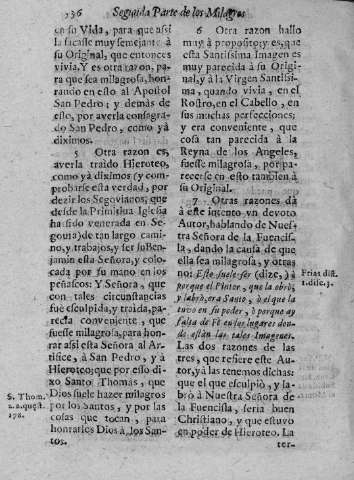 136 Segunda Parte de los Milagros
en su Vida, para que assi
la sacasse muy semejante à
su Original, que entonces
vivia. Y es otra razon, pa-
ra que sea milagrosa, hon-
rando en esto al Apostol
San Pedro; y demàs de
esto, por averla consagra-
do San Pedro, como yà
diximos.
5 Otra razon es,
averla traìdo Hieroteo,
como yà diximos (y com-
probarse esta verdad, por
dezir los Segovianos, que
desde la Primitiua Iglesia
ha sido venerada en Se-
gouia) de tan largo cami-
no, y trabajos, y ser su Ben-
jamin esta Señora, y colo-
cada por su mano en los
peñascos: Y Señora, que
con tales circunstancias
fue esculpida, y traìda, pa-
recia conveniente, que
fuesse milagrosa, para hon-
rar assi esta Señora al Ar-
tifice, à San Pedro, y à
Hieroteo; que por esso di-
xo Santo Thomàs, que
Dios suele hazer milagros
por los Santos, y por las
cosas que tocan, para
honrarlos Dios à los San-
tos.
S. Thom.
2.2. quæst.
178.
6 Otra razon hallo
muy à proposito; y es, que
esta Santissima Imagen es
muy parecida à su Origi-
nal, y à la Virgen Santissi-
ma, quando vivia, en el
Rostro, en el Cabello, en
sus muchas perfecciones;
y era conveniente, que
cosa tan parecida à la
Reyna de los Angeles,
fuesse milagrosa, por pa-
recerse en esto tambien à
su Original.
7 Otras razones dà
à este intento vn devoto
Autor, hablando de Nues-
tra Señora de la Fuencis-
la, dando la causa de que
ella sea milagrosa, y otras
no: Este suele ser (dize,) ò
porque el Pintor, que la obrò,
y labrò, era Santo, ò el que la
tuvo en su poder, ò porque ay
falta de Fè en los lugares don-
de estàn las tales Imagenes.
Las dos razones de las
tres, que refiere este Au-
tor, yà las tenemos dichas:
que el que esculpiò, y la-
brò à Nuestra Señora de
la Fuencisla, seria buen
Christiano, y que estuvo
en poder de Hieroteo. La
ter-
Frias dist.
1. disc. 3.